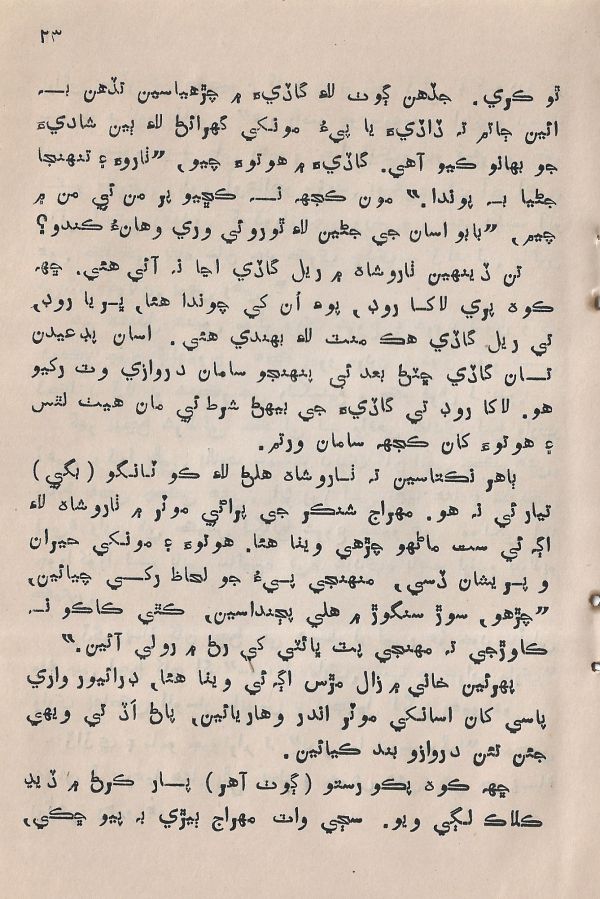 ۲۳
ٿو ڪري. جڏهن ڳوٺ لاءِ گاڏيءَ ۾ چڙهياسين تڏهن بـہ
ائين ڄاتم تہ ڏاڏيءَ يا پيءُ مونکي گهرائڻ لاءِ ٻين شاديءَ
جو بهانو ڪيو آهي. گاڏيءَ ۾ هوتوءَ چيو، ”ٺاروءَ ۽ تنهنجا
جڻيا بـہ پوندا.“ مون ڪجهہ نـہ ڪڇيو پر من ئي من ۾
چيم، ”بابو اسان جي جڻين لاءِ ٿوروئي وري وهانءُ ڪندو؟
تن ڏينهين ٺاروشاه ۾ ريل گاڏي اڃا نہ آئي هئي. ڇهہ
ڪوه پري لاکا روڊ، پوءِ اُن کي چوندا هئا، پـريا روڊ،
تي ريل گاڏي هڪ منٽ لاءِ بهندي هئي. اسان پڊعيدن
تـان گاڏي ڇٽڻ بعد ئي پنهنجو سامان دروازي وٽ رکيو
هو. لاکا روڊ تي گاڏيءَ جي بيهڻ شرط ئي مان هيٺ لٿس
۽ هوتوءَ کان ڪجهہ سامان ورتم.
ٻاهر نڪتاسين تہ ٺـاروشاه هلڻ لاءِ ڪو ٽانگو (بگي)
تيارئي نہ هو. مهراج شنڪر جي پراڻي موٽر ۾ ٺاروشاه لاءِ
اڳہ ئي ست ماڻهو چڙهي ويٺا هئا. هوتوءَ ۽ مونکي حيران
و پـريشان ڏسي، منهنجي پـيءُ جو لحاظ رکـي چيائين،
”چڙهو، سوڙ سنگوڙ ۾ هلي پڄنداسين، ڪٿي ڪاڪو نـہ
ڪاوڙجي تہ مهنجي پٽ ڀائٽي کي رڻ ۾ رولي آئين.“
پهرئين خاني ۾ زال مڙس اڳہ ئي ويٺا هئا، ڊرائيور واري
پاسي کان اسانکي موٽر اندر وهاريائين، پاڻ اَڌ تي ويهي
جئن تئن دروازو بند ڪيائين.
ڇهہ ڪوه پڪو رستو (ڳوٺ آهر) پـار ڪرڻ ۾ ڏيڍ
ڪلاڪ لـڳي ويو. سڄي واٽ مهراج ٻيڙي بہ پيو ڇڪي،